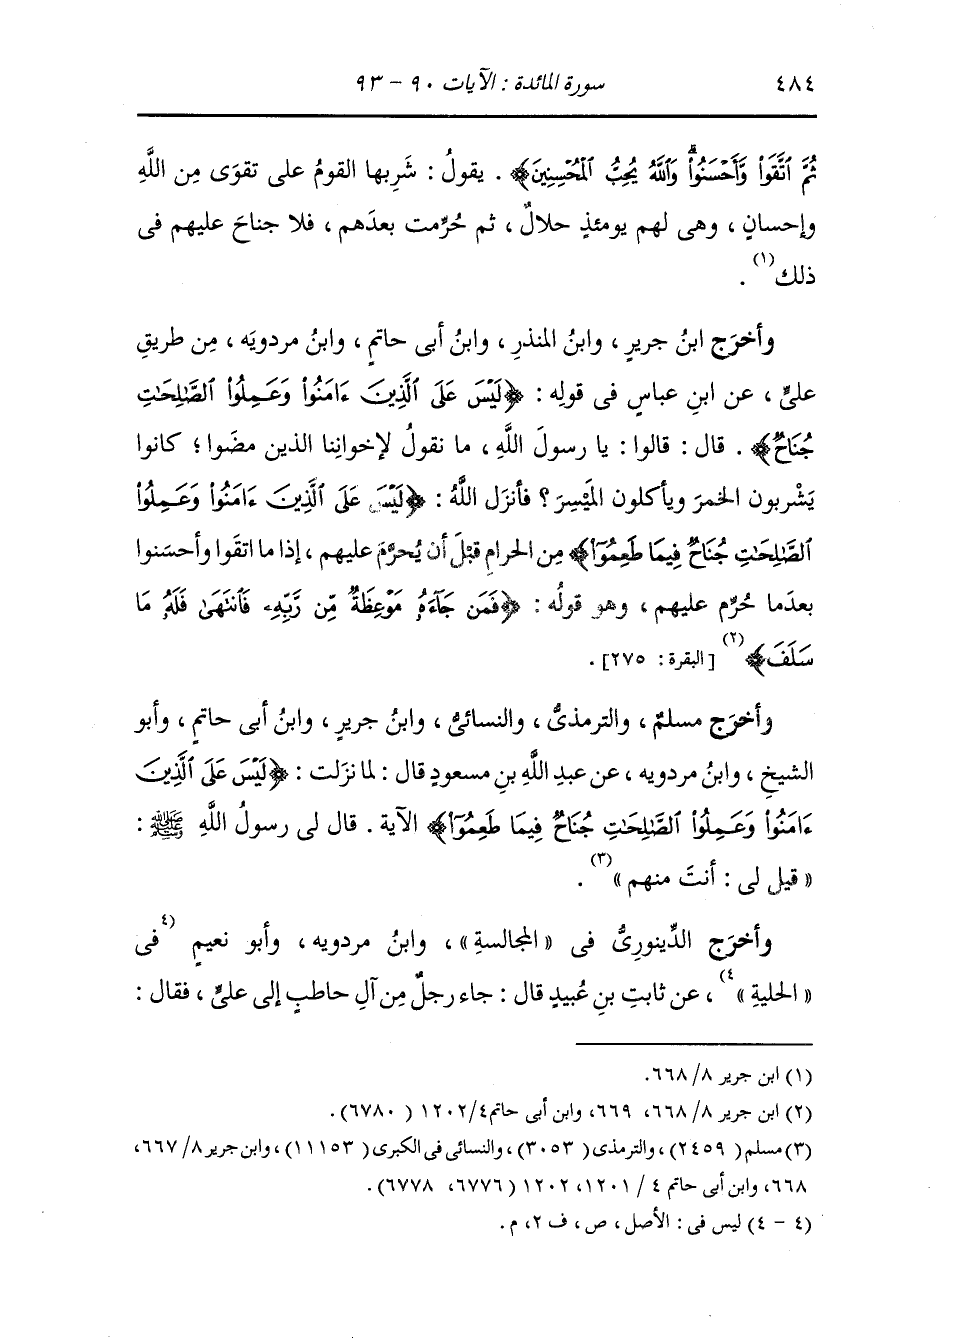 ٤٨٤ سورة المائدة : الآيات ٩٠ – ٩٣
ثُمَّ ٱتَّقَوا۟ وَّأَحْسَنُوا۟ۗ وَٱللَّهُ يُحِبُّ ٱلْمُحْسِنِينَ﴾ . يقولُ : شَرِبها القومُ على تقوَى مِن اللَّهِ
وإحسانٍ ، وهى لهم يومئذٍ حلالٌ ، ثم حُرِّمت بعدَهم ، فلا جناحَ عليهم فى
ذلك(١) .
وأخرَج ابنُ جريرٍ ، وابنُ المنذرِ ، وابنُ أبى حاتمٍ ، وابنُ مردويَه ، مِن طريقِ
علىٍّ ، عن ابنِ عباسٍ فى قولِه : ﴿لَيْسَ عَلَى ٱلَّذِينَ ءَامَنُوا۟ وَعَمِلُوا۟ ٱلصَّٰلِحَٰتِ
جُنَاحٌ﴾ . قال : قالوا : يا رسولَ اللَّهِ ، ما نقولُ لإخوانِنا الذين مضَوا ؛ كانوا
يَشْربون الخمرَ ويأكلون المَيْسِرَ ؟ فأنزَل اللَّهُ : ﴿لَيْسَ عَلَى ٱلَّذِينَ ءَامَنُوا۟ وَعَمِلُوا۟
ٱلصَّٰلِحَٰتِ جُنَاحٌ فِيمَا طَعِمُوٓا۟﴾ مِن الحرامِ قبْلَ أن يُحرَّمَ عليهم ، إذا ما اتقَوا وأحسَنوا
بعدَما حُرِّم عليهم ، وهو قولُه : ﴿فَمَن جَآءَهُۥ مَوْعِظَةٌ مِّن رَّبِّهِۦ فَٱنتَهَىٰ فَلَهُۥ مَا
سَلَفَ﴾(٢) [البقرة : ٢٧٥] .
وأخرَج مسلمٌ ، والترمذىُّ ، والنسائىُّ ، وابنُ جريرٍ ، وابنُ أبى حاتمٍ ، وأبو
الشيخِ ، وابنُ مردويه ، عن عبدِ اللَّهِ بنِ مسعودٍ قال : لما نزَلت : ﴿لَيْسَ عَلَى ٱلَّذِينَ
ءَامَنُوا۟ وَعَمِلُوا۟ ٱلصَّٰلِحَٰتِ جُنَاحٌ فِيمَا طَعِمُوٓا۟﴾ الآية . قال لى رسولُ اللَّهِ ﷺ :
« قيل لى : أنتَ منهم »(٣) .
وأخرَج الدِّينورِىُّ فى « المجالسةِ » ، وابنُ مردويه ، وأبو نعيمٍ (٤فى
« الحليةِ »٤) ، عن ثابتِ بنِ عُبيدٍ قال : جاء رجلٌ مِن آلِ حاطبٍ إلى علىٍّ ، فقال :
(١) ابن جرير ٨/ ٦٦٨.
(٢) ابن جرير ٨/ ٦٦٨، ٦٦٩، وابن أبى حاتم ٤/ ١٢٠٢ ( ٦٧٨٠).
(٣) مسلم ( ٢٤٥٩) ، والترمذى ( ٣٠٥٣) ، والنسائى فى الكبرى ( ١١١٥٣) ، وابن جرير ٨/ ٦٦٧،
٦٦٨، وابن أبى حاتم ٤ / ١٢٠١، ١٢٠٢ ( ٦٧٧٦، ٦٧٧٨).
(٤ – ٤) ليس فى : الأصل ، ص ، ف ٢، م .